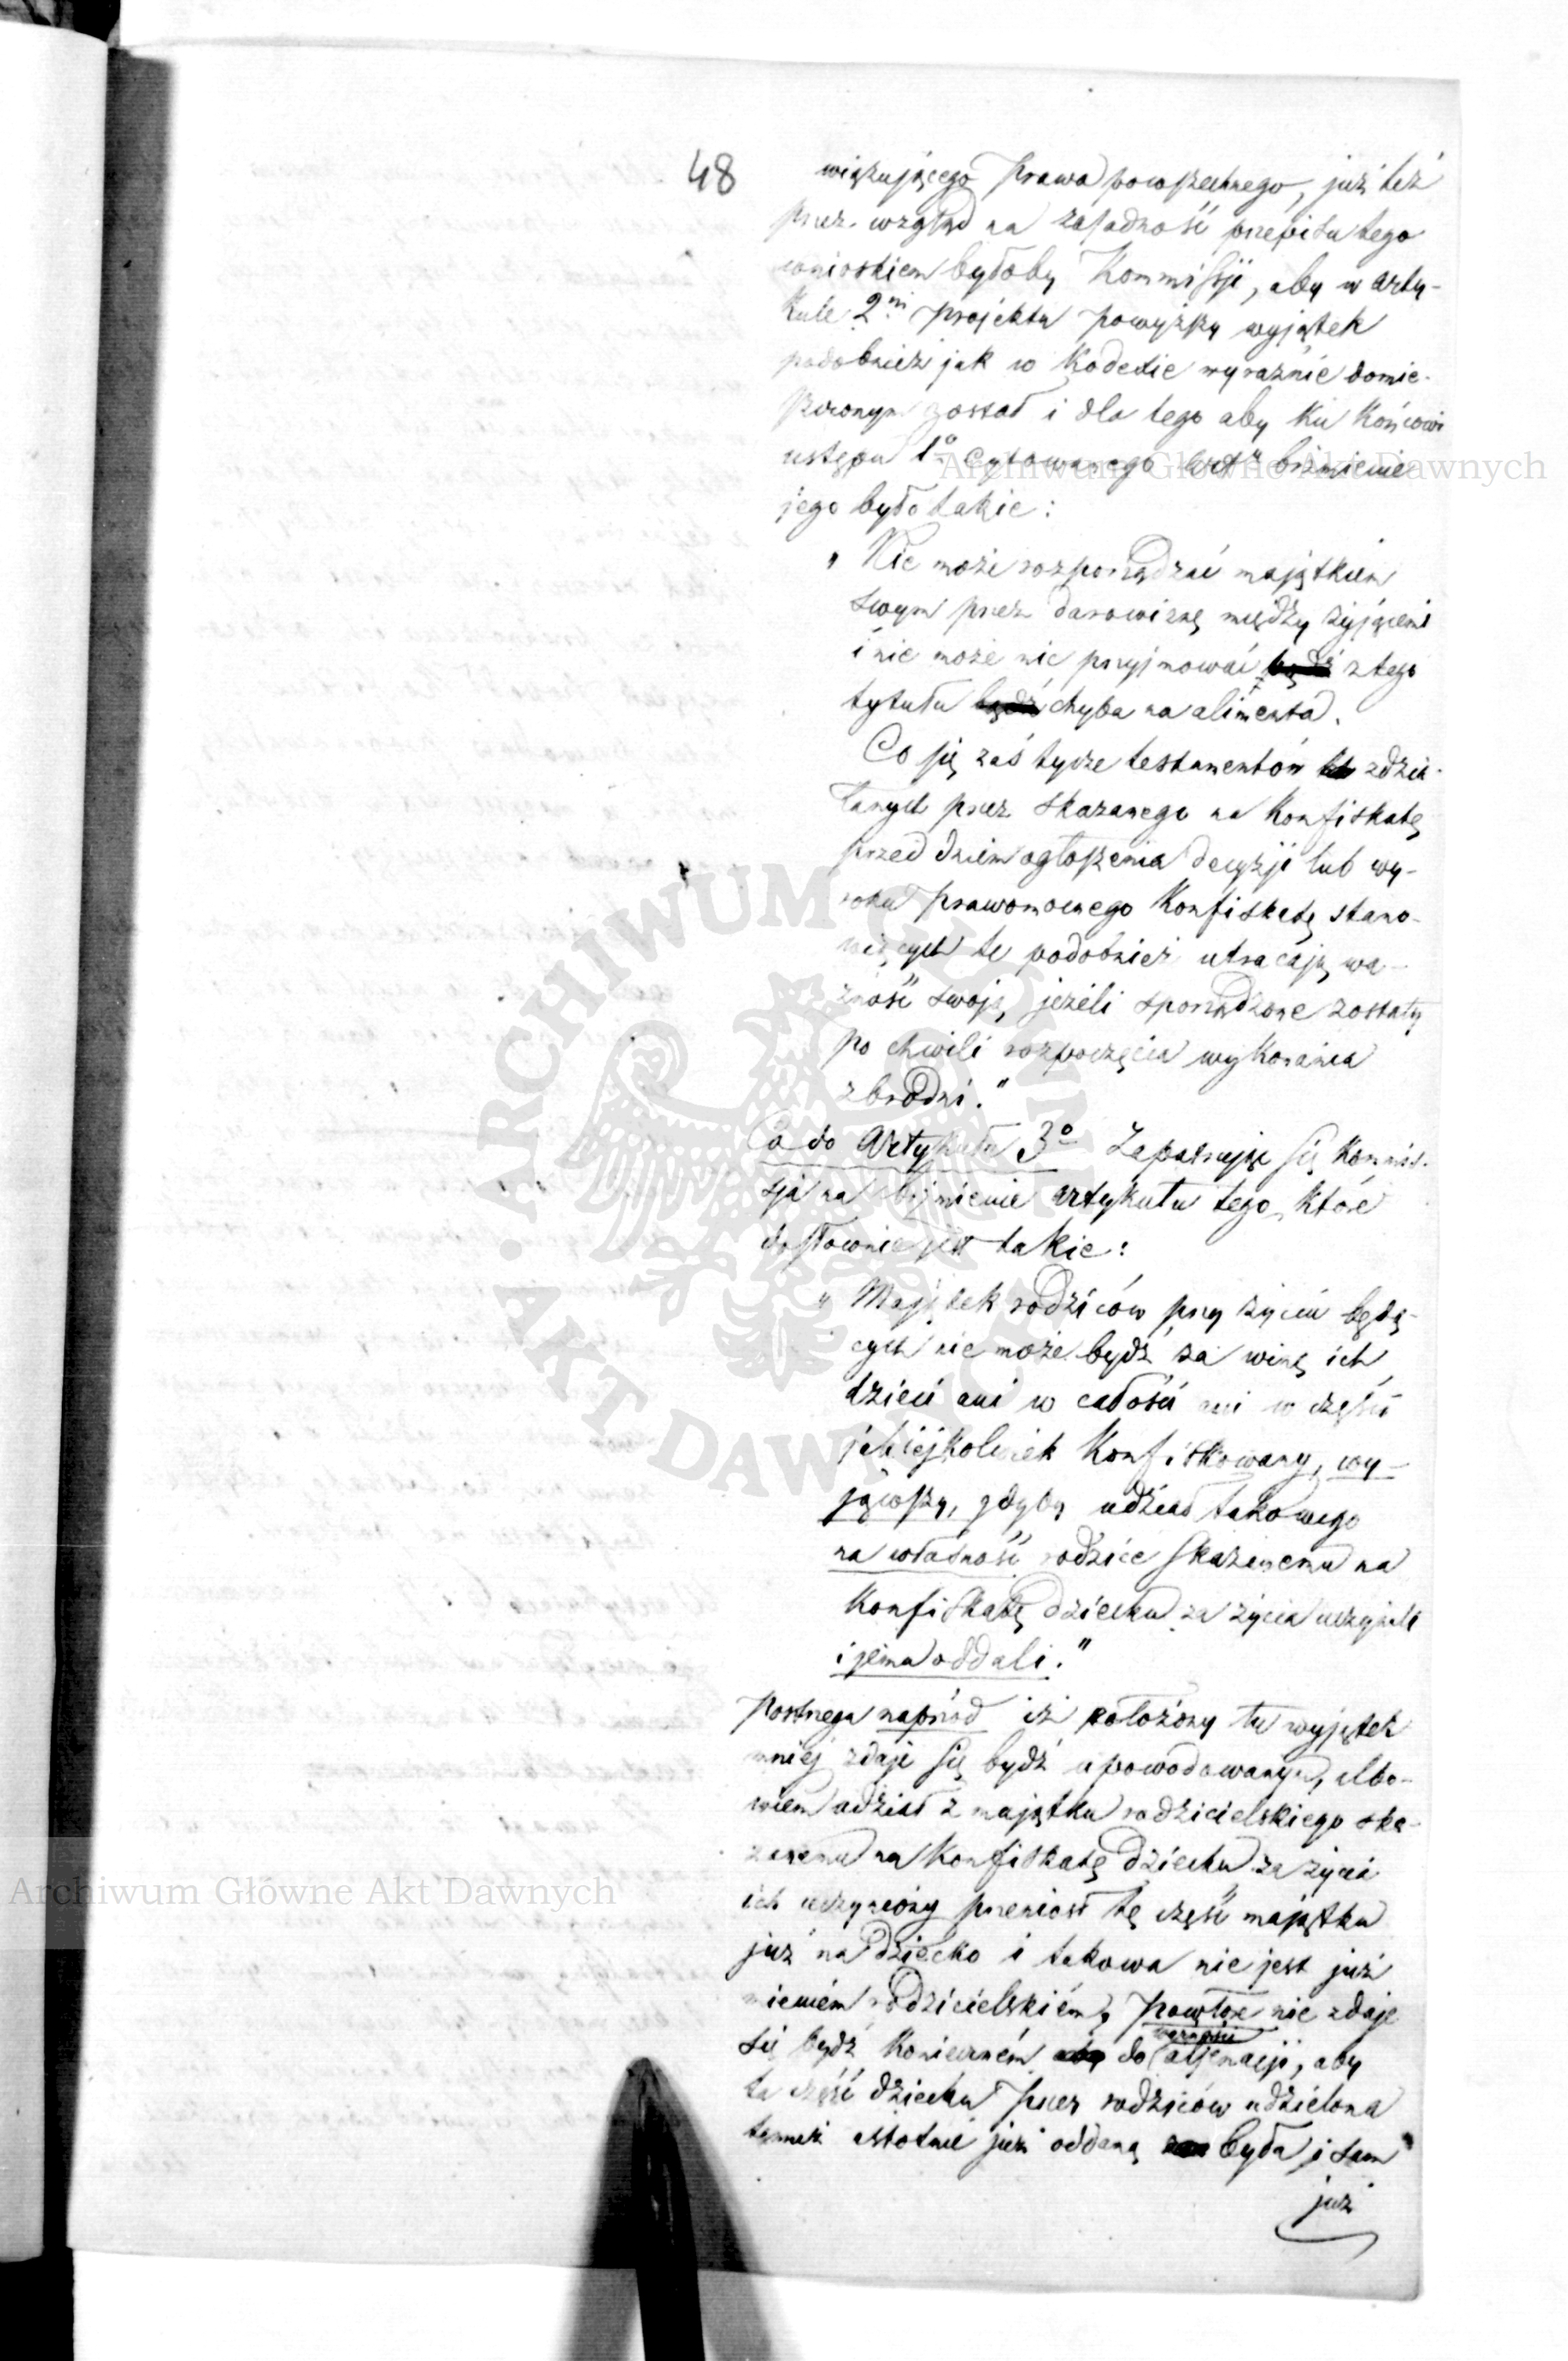 48
wiązującego prawa powszechnego, już też
przez wzgląd na zasadność przepisu tego
wnioskiem byłoby Kommissji, aby w arty-
kule 2m projektu powyższy wyjątek
podobnież jak w Kodexie wyraźnie domie-
szczonym został i dla tego aby ku końcowi
ustępu 1o cytowanego artłu brzmienie
jego było takie:
„ Nie może rozporządzać majątkiem
swym przez darowiznę między żyjącemi
i nie może nic przyjmować z tego
tytułu chyba na alimenta.
Co się zaś tycze testamentów zdzia-
łanych przez skazanego na Konfiskatę
przed dniem ogłoszenia decyzji lub wy-
roku prawomocnego Konfiskatę stano-
wiących te podobnież utracają wa-
żność swoją, jeżeli sporządzone zostały
po chwili rozpoczęcia wykonania
zbrodni."
Co do Artykułu 3o Zapatrując się Kommis-
sja na brzmienie artykułu tego, które
dosłownie jest takie:
„ Majątek rodziców przy życiu będą-
cych nie może bydź za winę ich
dzieci ani w całości ani w części
jakiejkolwiek Konfiskowany, wy-
jąwszy, gdyby udział takowego
na własność rodzice skazanemu na
Konfiskatę dziecku za życia uczynili
i jemu oddali."
postrzega naprzód iż położony tu wyjątek
mniej zdaje się bydź upowodowanym, albo-
wiem udział z majątku rodzicielskiego ska-
zanemu na Konfiskatę dziecku za życia
ich uczyniony przeniósł tę część majątku
już na dziecko i takowa nie jest już
mieniem rodzicielskiém, powtóre nie zdaje
się bydź konieczném do alienacji, aby
ta część dziecku przez rodziców udzielona
temuż istotnie już oddaną była i sam
już
Archiwum Główne Akt Dawnych
Archiwum Główne Akt Dawnych
ARCHIWUM GŁÓWNE
AKT DAWNYCH